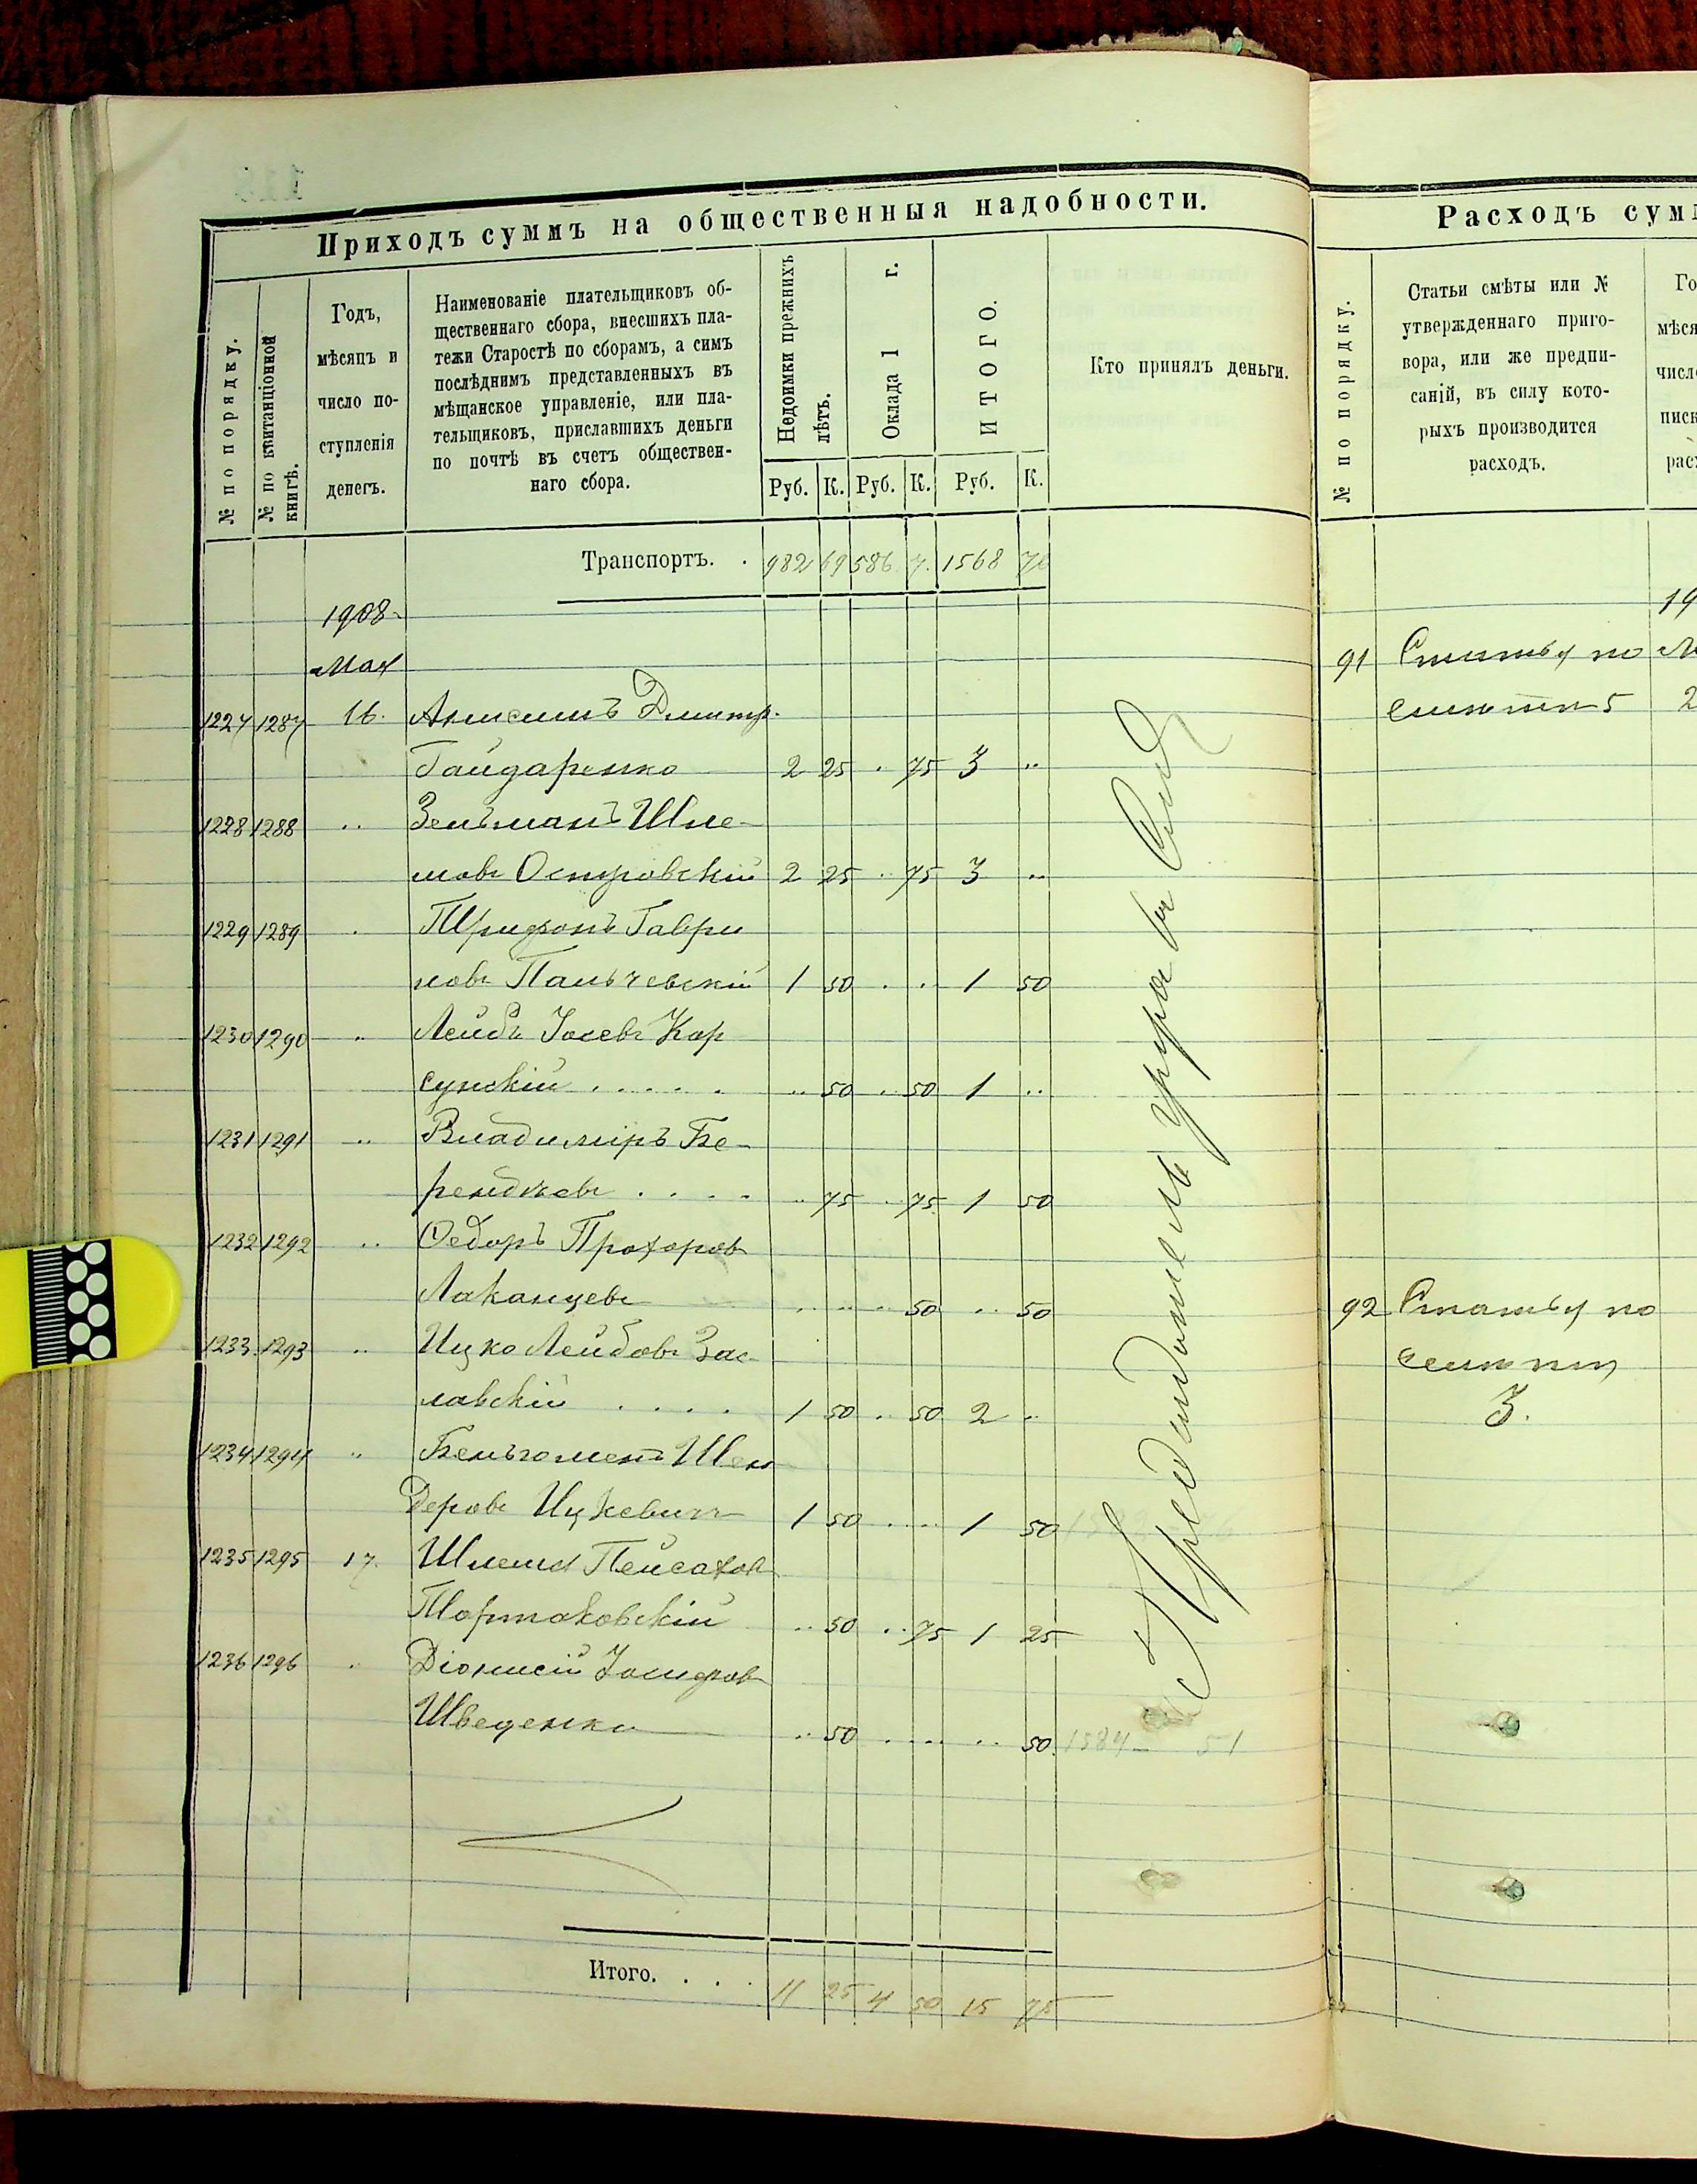 Приходъ суммъ на общественныя надобности.
№ по порядку.
№ по квитанціонной книгѣ.
Годъ,
мѣсяцъ и
число по-
ступленія
денегъ.
Наименованіе плательщиковъ об-
щественнаго сбора, внесшихъ пла-
тежи Старостѣ по сборамъ, а симъ
послѣднимъ представленныхъ въ
мѣщанское управленіе, или пла-
тельщиковъ, приславшихъ деньги
по почтѣ въ счетъ обществен-
наго сбора.
Недоимки прежнихъ
лѣтъ.
Оклада 1 г.
ИТОГО.
Кто принялъ деньги.
Руб. К. Руб. К. Руб. К.
Транспортъ. . 982 69 586 7. 1568 76
1908
Мая
1227 1287 16. Анисимъ Дмитр.
Гайдаренко 2 25 . 75 3 ..
1228 1288 .. Зельманъ Шле-
мовъ Островскій 2 25 . 75 3 ..
1229 1289 . Трифонъ Гаври
ловъ Пальчевскій 1 50 . . 1 50
1230 1290 .. Лейба Іосевъ Кор
сунскій . . . . . .. 50 .. 50 1 ..
1231 1291 .. Владиміръ Бе-
рендѣевъ . . . . .. 75 .. 75 1 50
1232 1292 .. Ѳедоръ Прохоров
Лаканцевъ .. .. . 50 .. 50
1233. 1293 .. Ицко Лейбовъ Зас-
лавскій . . . . 1 50 . 50 2 ..
1234 1294 .. Шен
деровъ Ицкевичъ 1 50 .. .. 1 50
1235 1295 17. Шлема Пейсахов
Портаковскій .. 50 .. 75 1 25
1236 1296 . Діонисій Іосифов
Шведенко .. 50 . .. .. 50 1584 — 51
Итого. . . . 11 25 4 50 15 75
Расходъ сумм
№ по порядку.
Статьи смѣты или №
утвержденнаго приго-
вора, или же предпи-
саній, въ силу кото-
рыхъ производится
расходъ.
Го
мѣся
число
писк
расх
19
91 Статья по М
смѣтѣ 5 2
92 Статья по
смѣтѣ
3.